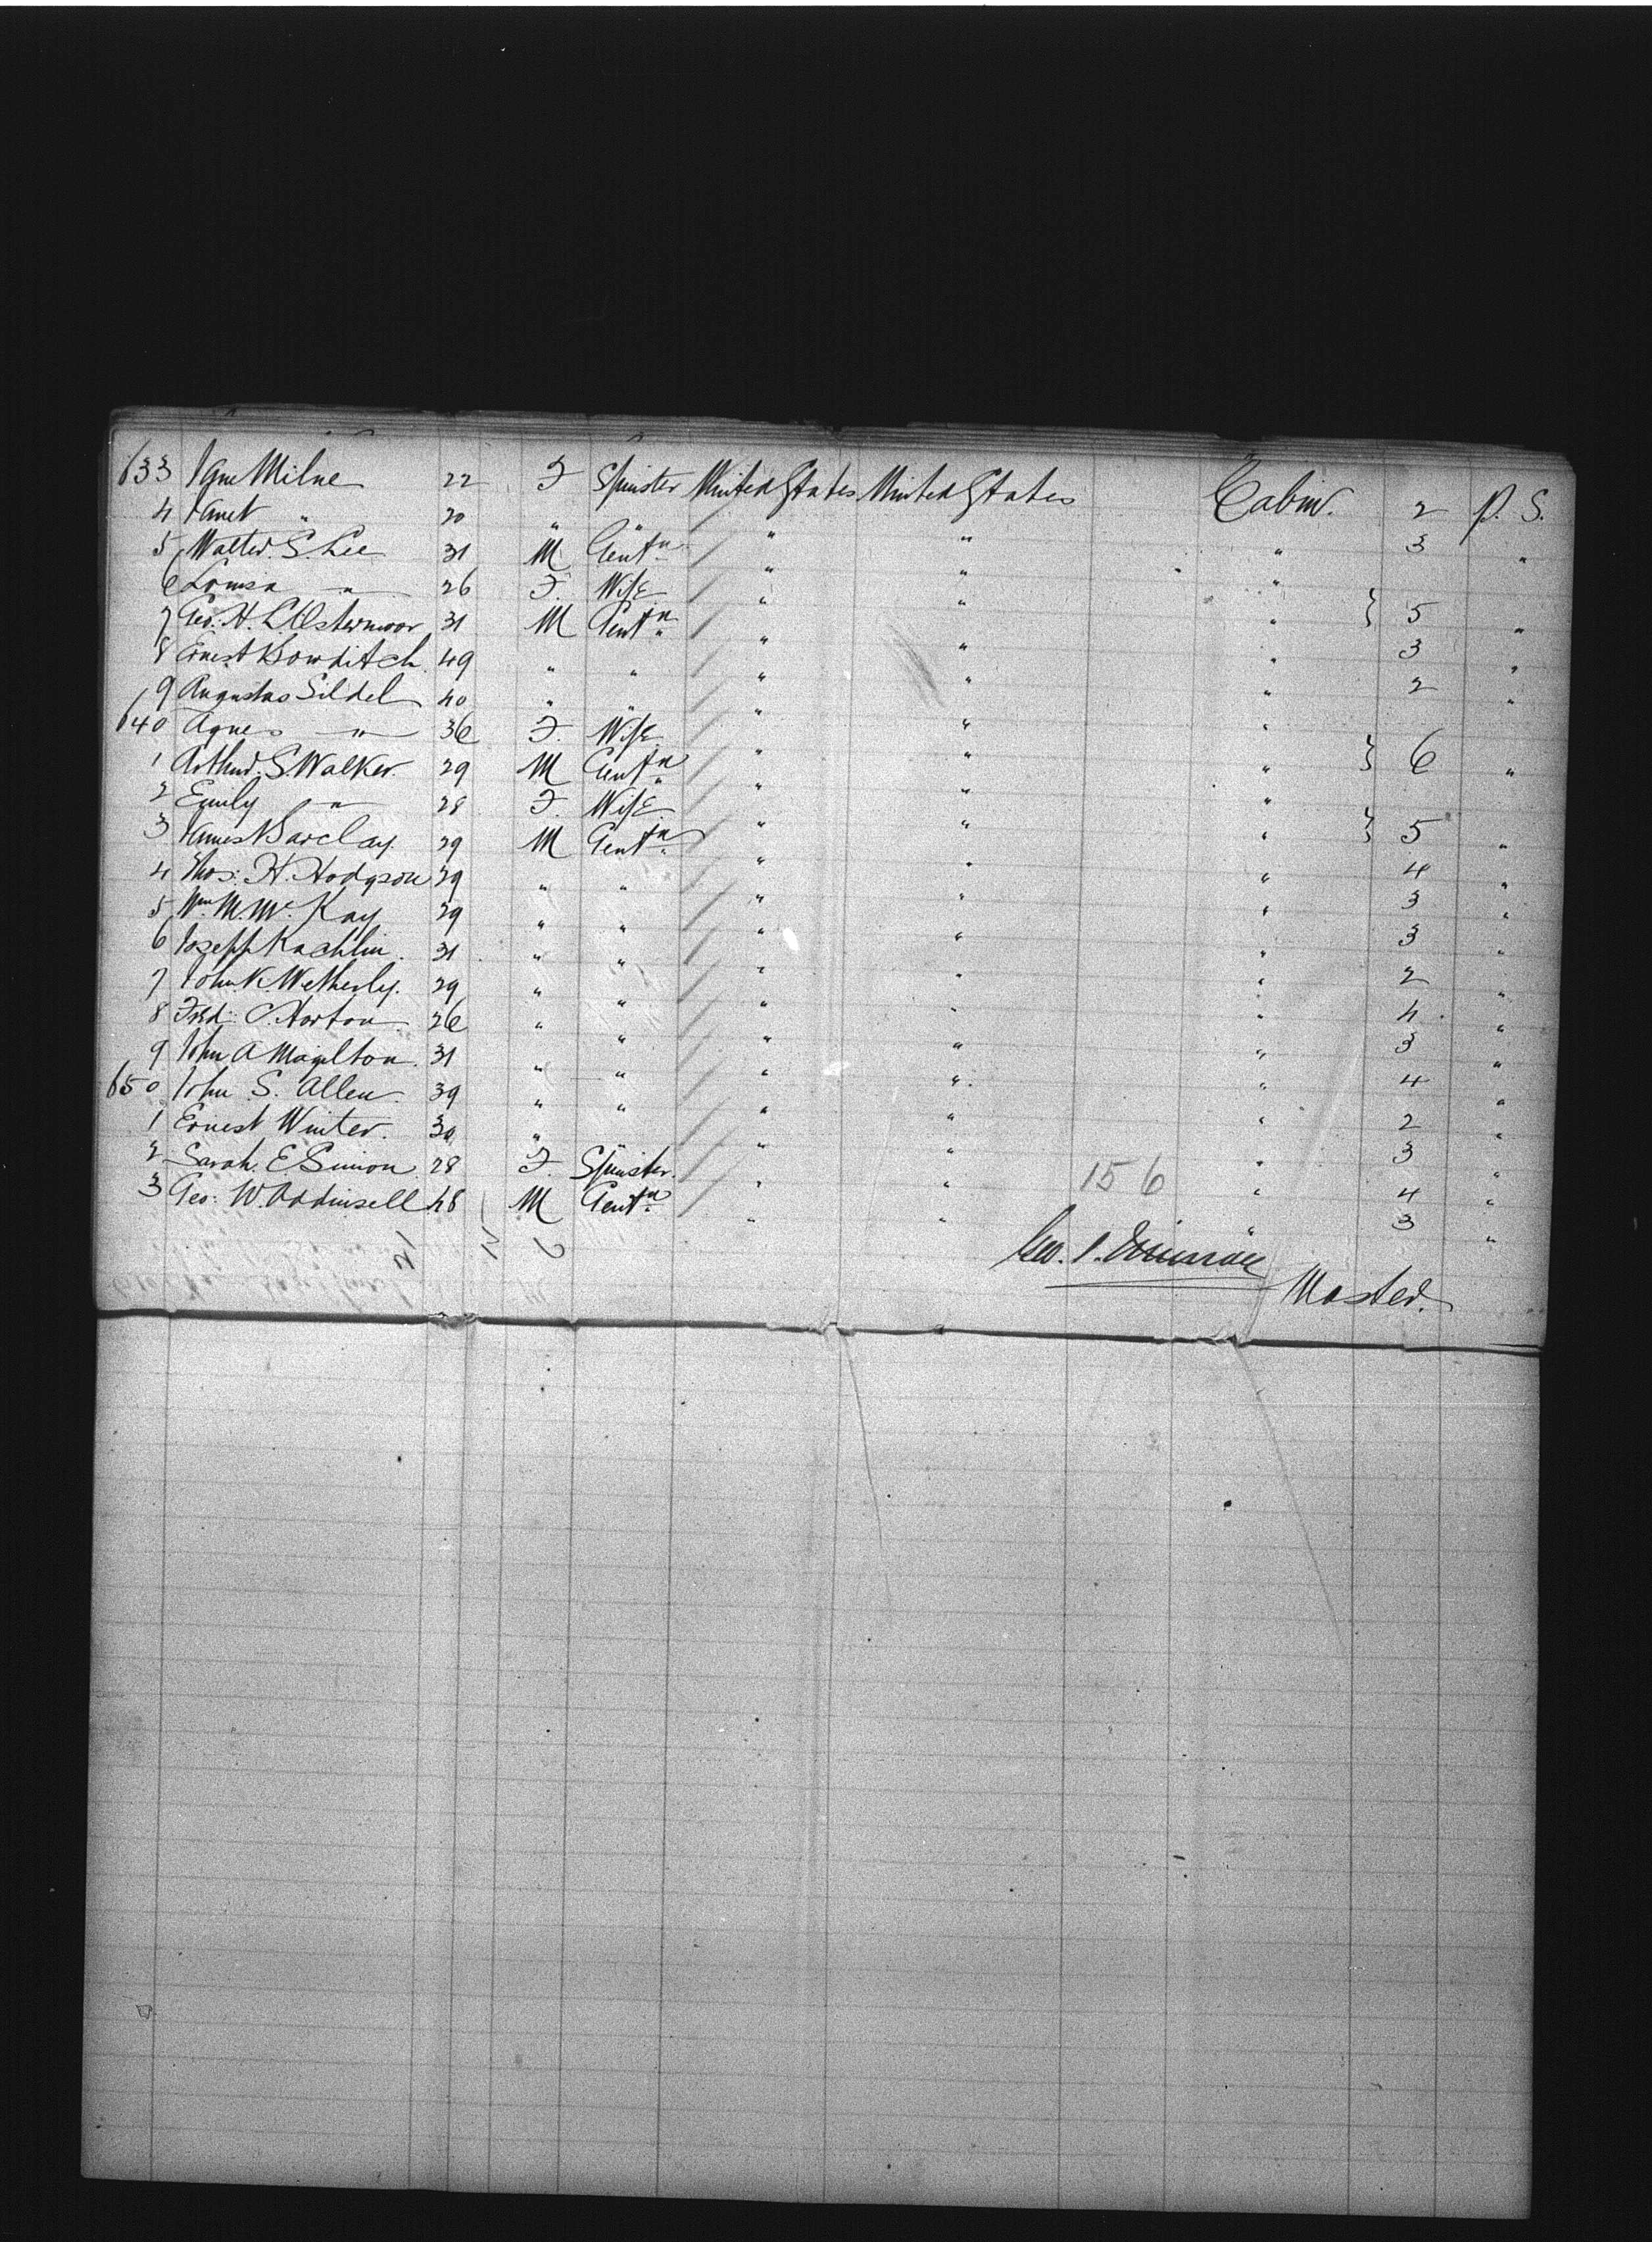 633 Jane Milne 22 F Spinster United States United States Cabin. 2 P. S.
4 Janet " 20 " " " " " 3 "
5 Walter. S. Lee 31 M Gentn " " "
6 Louisa " 26 F. Wife " " " } 5 "
7 Geo. H. L. Ostermoor 31 M Gentn " " " 3 "
8 Ernest Bowditch 49 " " " " " 2 "
9 Augustus Seidel 40 " " " " "
640 Agnes " 36 F. Wife " " " } 6 "
1 Arthur. S. Walker. 29 M Gentn " " "
2 Emily " 28 F. Wife " " " } 5 "
3 James Barclay. 29 M Gentn " " " 4 "
4 Thos: H. Hodgson 29 " " " " " 3 "
5 Wm. M. Mc. Kay 29 " " " " " 3 "
6 Joseph Kachlin. 31 " " " " " 2 "
7 John K. Wetherly. 29 " " " " " 4 "
8 Fred: C. Horton 26 " " " " " 3 "
9 John A Magilton. 31 " " " " " 4 "
650 John S. Allen. 39 " " " " " 2 "
1 Ernest Winter. 30 " " " " " 3 "
2 Sarah. E. Simon 28 F. Spinster. " " " 4 "
3 Geo: W. Addinsell 48 M Gentn " " " 3 "
156
Geo. 
Master.